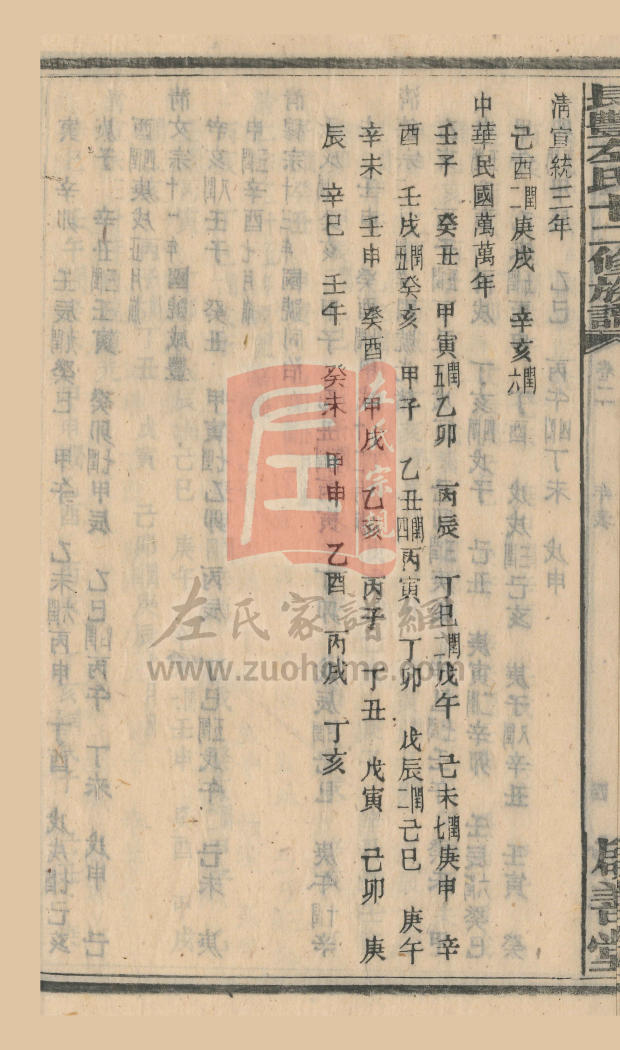 長豐左氏十二修族譜
卷二
年表
四
清宣統三年
己酉閏二庚戌 辛亥閏六
中華民國萬萬年
壬子 癸丑 甲寅閏五乙卯 丙辰 丁巳閏二戊午 己未閏七庚申 辛
酉 壬戌閏五癸亥 甲子 乙丑閏四丙寅 丁卯 戊辰閏二己巳 庚午
辛未 壬申 癸酉 甲戌 乙亥 丙子 丁丑 戊寅 己卯 庚
辰 辛巳 壬午 癸未 甲申 乙酉 丙戌 丁亥
左氏宗親
左氏家譜網
www.zuohome.com